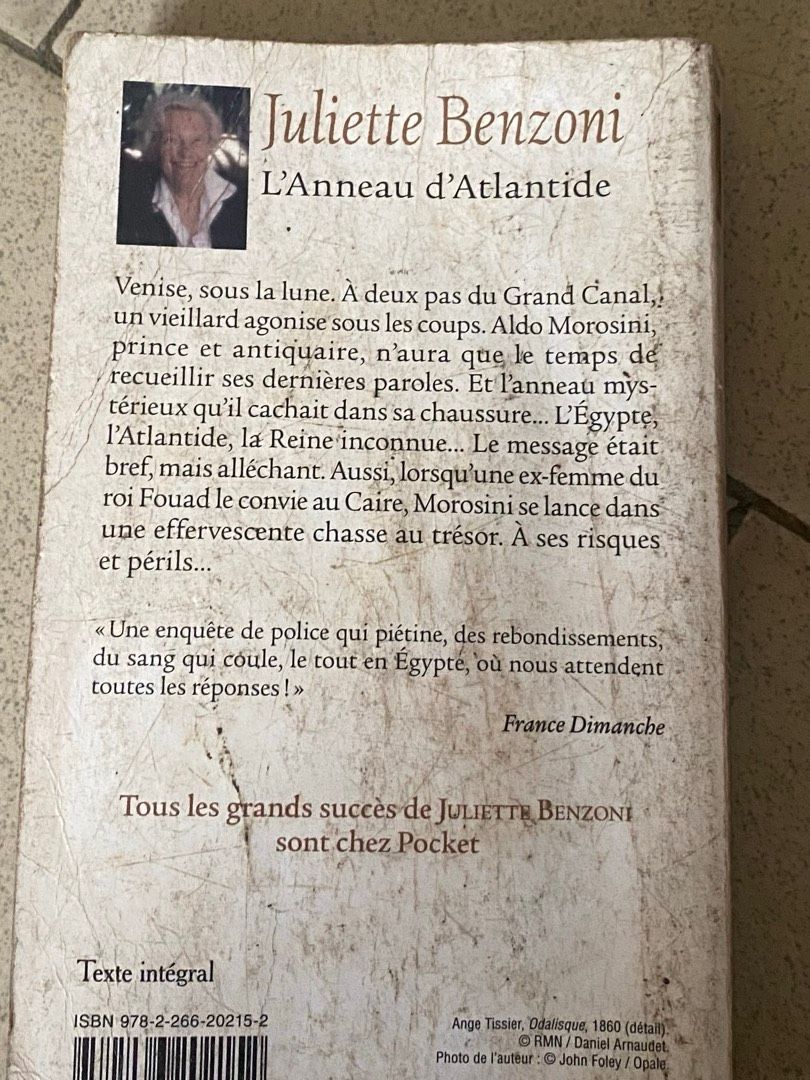 Juliette Benzoni
L'Anneau d'Atlantide
Venise, sous la lune. À deux pas du Grand Canal,
un vieillard agonise sous les coups. Aldo Morosini,
prince et antiquaire, n'aura que le temps de
recueillir ses dernières paroles. Et l'anneau mys-
térieux qu'il cachait dans sa chaussure... L'Égypte,
l'Atlantide, la Reine inconnue... Le message était
bref, mais alléchant. Aussi, lorsqu'une ex-femme du
roi Fouad le convie au Caire, Morosini se lance dans
une effervescente chasse au trésor. À ses risques
et périls...
« Une enquête de police qui piétine, des rebondissements,
du sang qui coule, le tout en Égypte, où nous attendent
toutes les réponses ! »
France Dimanche
Tous les grands succès de JULIETTE BENZONI
sont chez Pocket
Texte intégral
ISBN 978-2-266-20215-2
Ange Tissier, Odalisque, 1860 (détail).
© RMN / Daniel Arnaudet.
Photo de l'auteur : © John Foley / Opale.